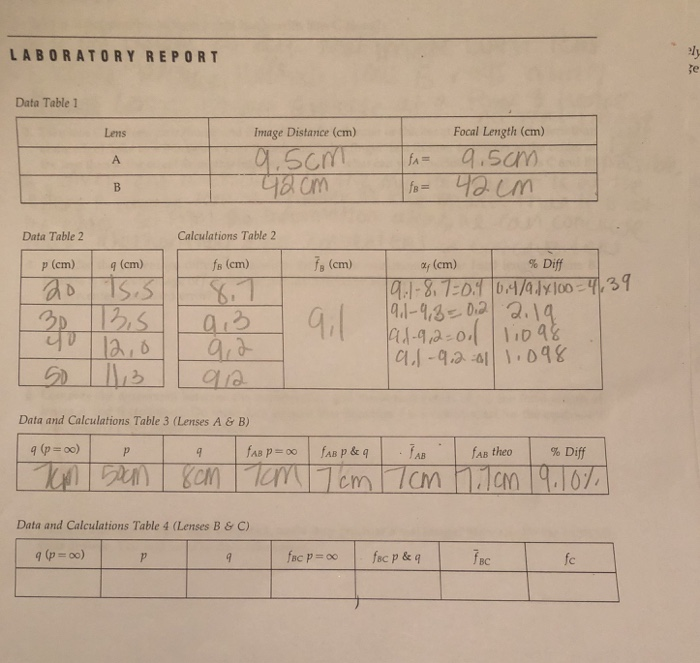 LABORATORY REPORT
Data Table 1
Lens Image Distance (cm) Focal Length (cm)
A 9.5cm fA = 9.5cm
B 42 cm fB = 42 cm
Data Table 2 Calculations Table 2
p (cm) q (cm) fB (cm) f̄B (cm) αf (cm) % Diff
20 15.5 8.7 9.1 9.1-8.7=0.4 0.4/9.1x100=4.39
30 13.5 9.3 9.1-9.3=0.2 2.19
40 12.0 9.2 9.1-9.2=0.1 1.098
50 11.3 9.2 9.1-9.2=01 1.098
Data and Calculations Table 3 (Lenses A & B)
q (p = ∞) p q fAB p = ∞ fAB p & q f̄AB fAB theo % Diff
7cm 50cm 8cm 7cm 7cm 7cm 7.7cm 9.10%
Data and Calculations Table 4 (Lenses B & C)
q (p = ∞) p q fBC p = ∞ fBC p & q f̄BC fC